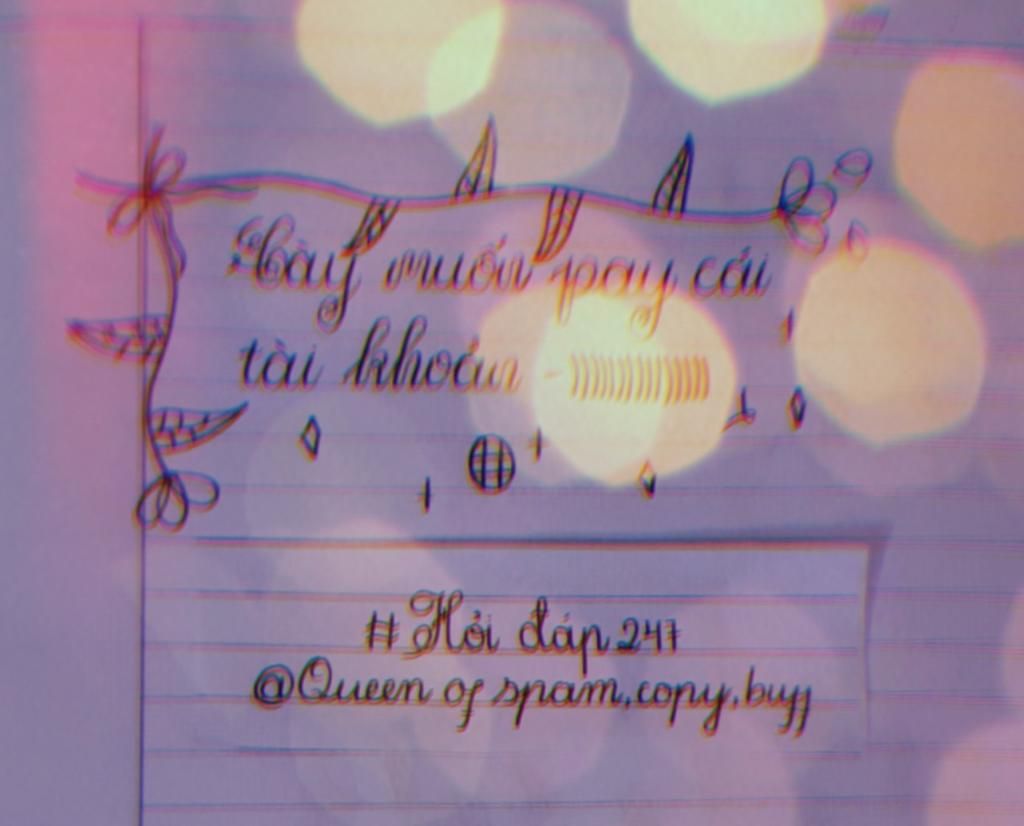 Cày muốn pay cái
tài khoản -))))))))))))))))
#Hỏi đáp 247
@Queen of spam,copy,buff